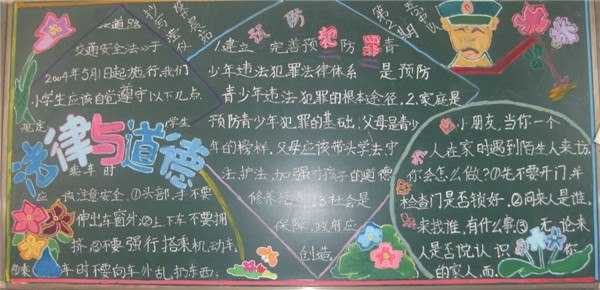 道路
交通安全法》于
2004年5月1日起施行,我们
小学生应该自觉遵守以下几点
规定 学生
法律与道德
乘车时
应该注意安全.①头部,手不要
伸出车窗外;②上下车不要拥
挤.③不要强行搭乘机动车,
④乘车时不要向车外乱扔东西;
预防犯罪
1.建立 完善预防犯罪青
少年违法犯罪法律体系 是预防
青少年违法犯罪的根本途径.2.家庭是
预防青少年犯罪的基础.父母是青少
年的榜样,父母应该带头学法守
法,护法,加强对孩子的道德
修养 社会是
保障.政府应
创造
小朋友,当你一个
人在家时遇到陌生人来访
你会怎么做?①先不要开门,并
检查门是否锁好.②问来人是谁,
来找谁,有什么事③.无论来
人是否说认识你
的家人,而